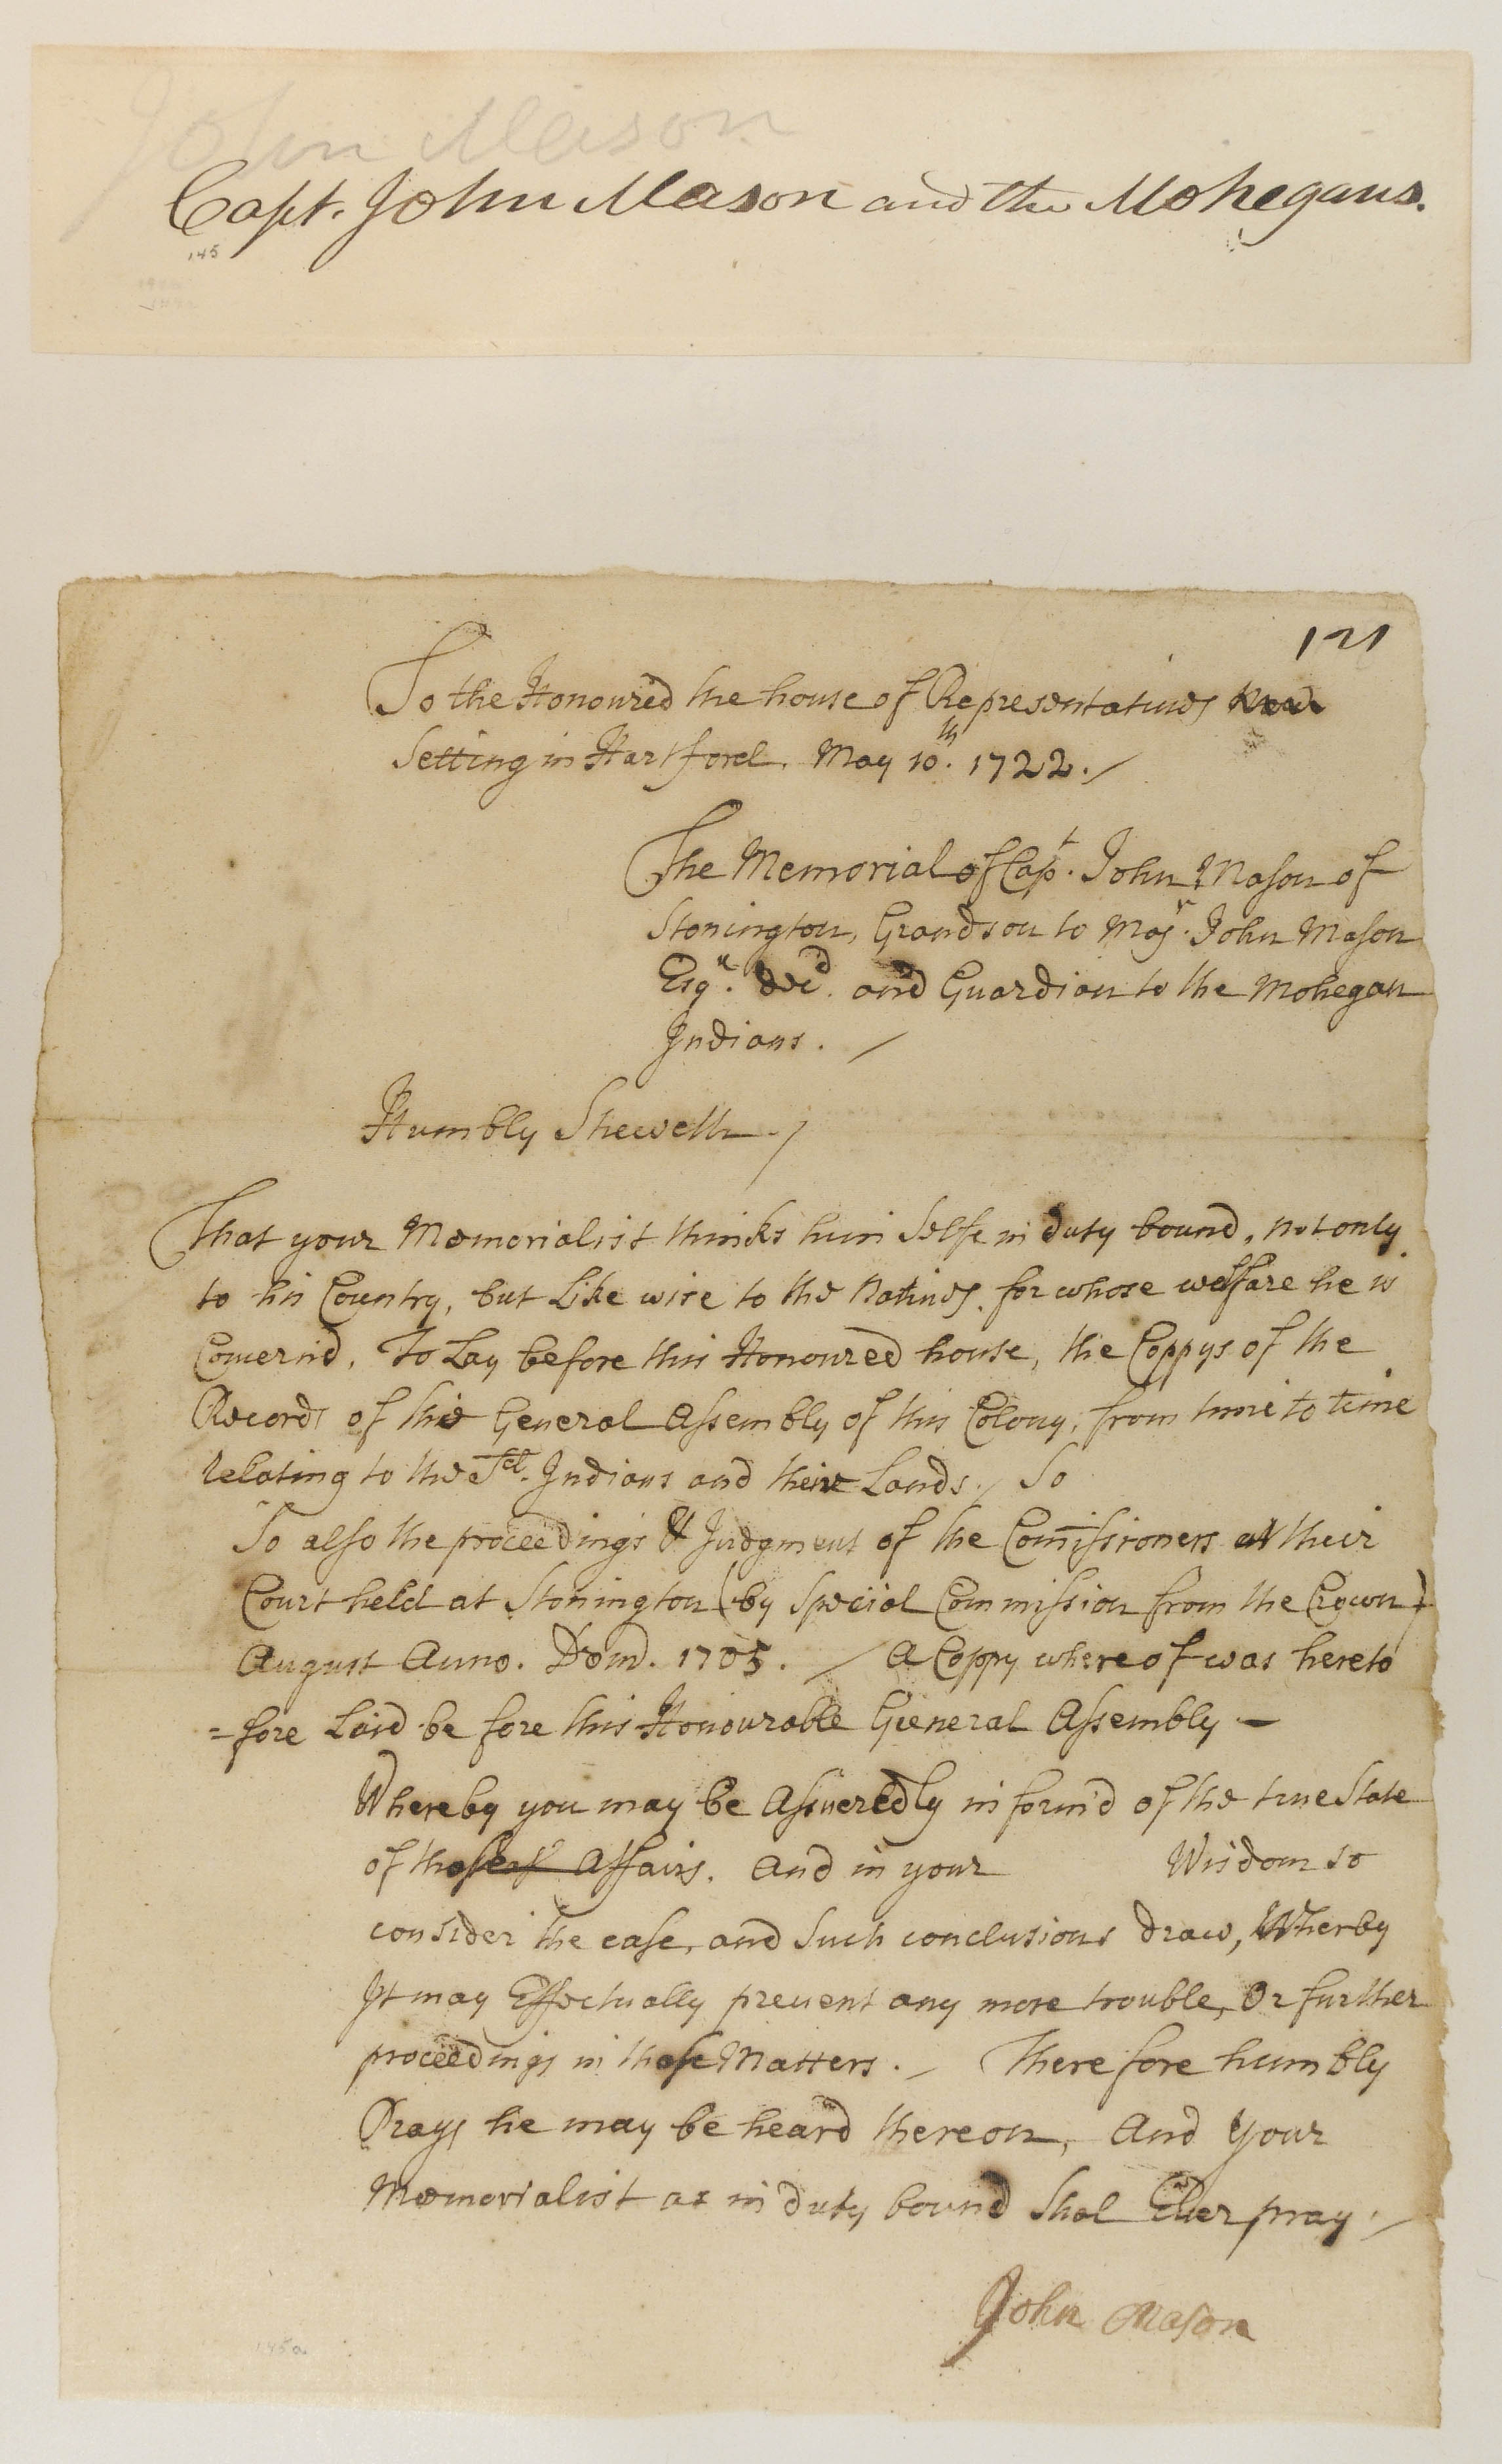 John Mason
Capt. John Mason and the Mohegans.
145
121
To the Honoured the house of Representatiues Now
Setting in Hartford. May 10th. 1722.
The Memorial of Capt. John Mason of
Stonington, Grandson to Majr. John Mason
Esqr. decd. and Guardian to the Mohegan
Indians.
Humbly Sheweth
That your Memorialist thinks him Selfe in duty bound, not only
to his Country, but Like wise to the Natiues, for whose welfare he is
Concernd, To Lay before this Honoured house, the Coppys of the
Records of the General Assembly of this Colony, from time to time
relating to the Sd. Indians and their Lands. So
So also the proceedings & Judgment of the Comissioners at their
Court held at Stonington (by special Commission from the Crown)
August Anno. Dom. 1705. A Coppy where of was hereto
=fore Laid be fore this Honourable General Assembly
Whereby you may be Assueredly inform'd of the true State
of those Affairs. And in your Wisdom so
consider the case, and Such conclusions draw, Wherby
It may Effectually preuent any more trouble, Or further
proceedings in those Matters. Therefore humbly
Prays he may be heard thereon, And Your
Memorialist as in duty bound Shal Euer pray.
John Mason
145a